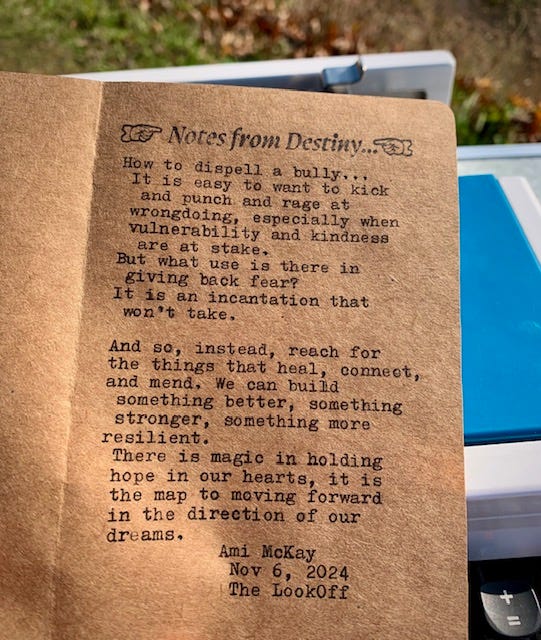 Notes from Destiny...
How to dispell a bully...
It is easy to want to kick
and punch and rage at
wrongdoing, especially when
vulnerability and kindness
are at stake.
But what use is there in
giving back fear?
It is an incantation that
won't take.
And so, instead, reach for
the things that heal, connect,
and mend. We can build
something better, something
stronger, something more
resilient.
There is magic in holding
hope in our hearts, it is
the map to moving forward
in the direction of our
dreams.
Ami McKay
Nov 6, 2024
The LookOff
+
=